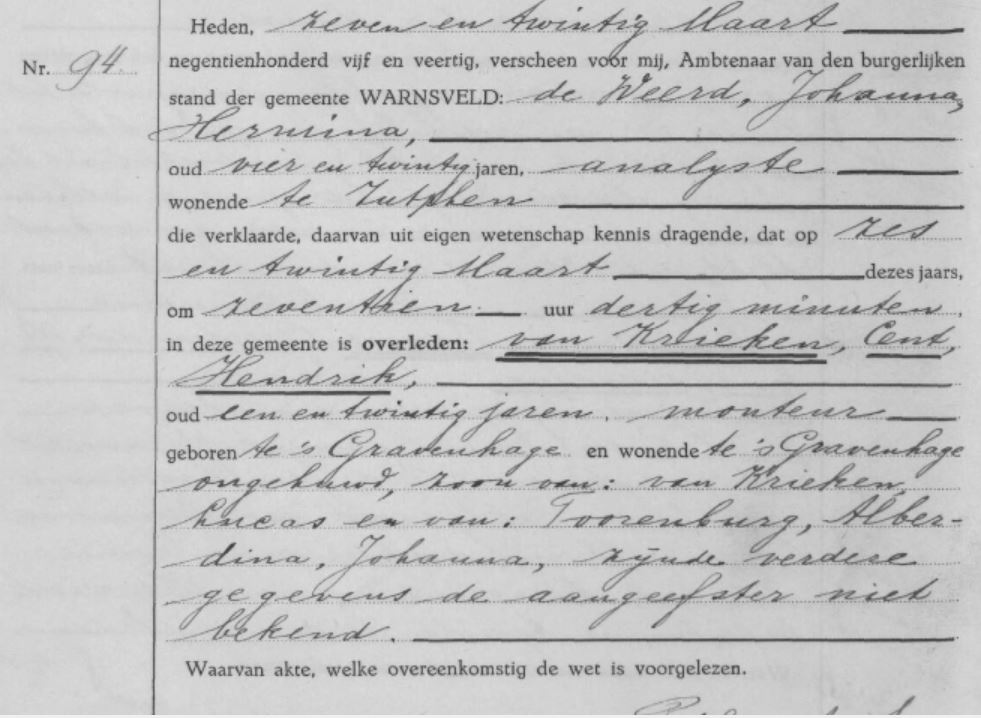 Heden, zeven en twintig Maart
Nr. 94. negentienhonderd vijf en veertig, verscheen voor mij, Ambtenaar van den burgerlijken
stand der gemeente WARNSVELD: de Weerd, Johanna,
Hermina,
oud vier en twintig jaren, analyste
wonende te Zutphen
die verklaarde, daarvan uit eigen wetenschap kennis dragende, dat op zes
en twintig Maart dezes jaars,
om zeventien uur dertig minuten,
in deze gemeente is overleden: van Krieken, Cent,
Hendrik,
oud een en twintig jaren, monteur
geboren te 's Gravenhage en wonende te 's Gravenhage
ongehuwd, zoon van: van Krieken,
Lucas en van: Toorenburg, Alber-
dina, Johanna, zijnde verdere
gegevens de aangeefster niet
bekend.
Waarvan akte, welke overeenkomstig de wet is voorgelezen.